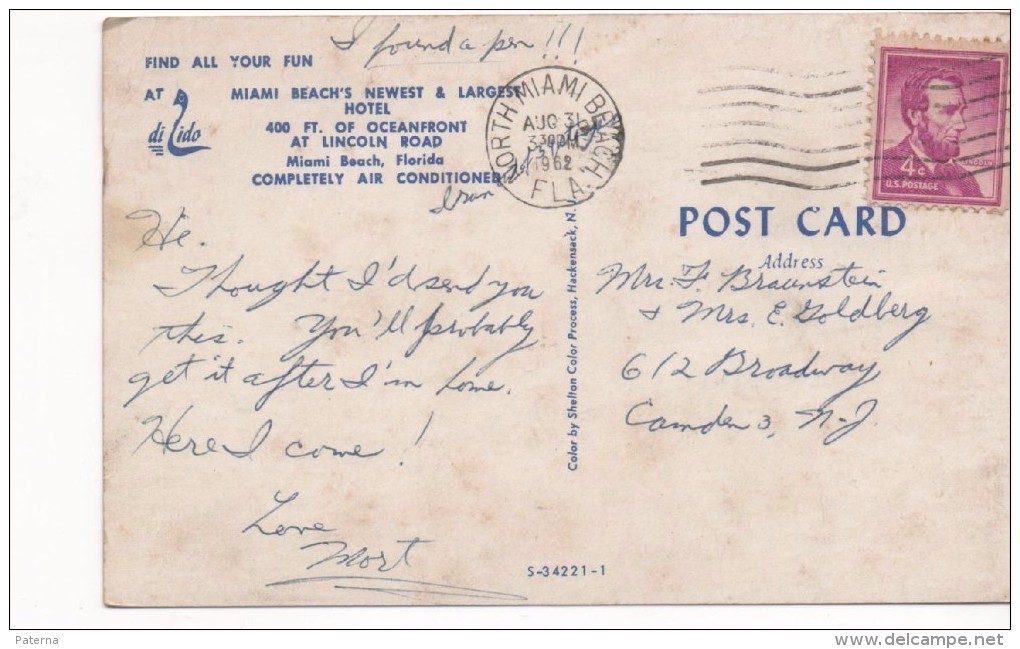 I found a pen!!!
FIND ALL YOUR FUN
AT di Lido
MIAMI BEACH'S NEWEST & LARGEST
HOTEL
400 FT. OF OCEANFRONT
AT LINCOLN ROAD
Miami Beach, Florida
COMPLETELY AIR CONDITIONED
NORTH MIAMI BEACH
AUG 31
330PM
1962
FLA.
4¢
LINCOLN
U.S. POSTAGE
Hi.
Thought I'd send you
this. You'll probably
get it after I'm home.
Here I come!
Love
Mort
Color by Shelton Color Process, Hackensack, N.
POST CARD
Address
Mr. F. Braunstein
& Mrs. E. Goldberg
612 Broadway
Camden 3, N.J.
S-34221-1
Paterna
www.delcampe.net